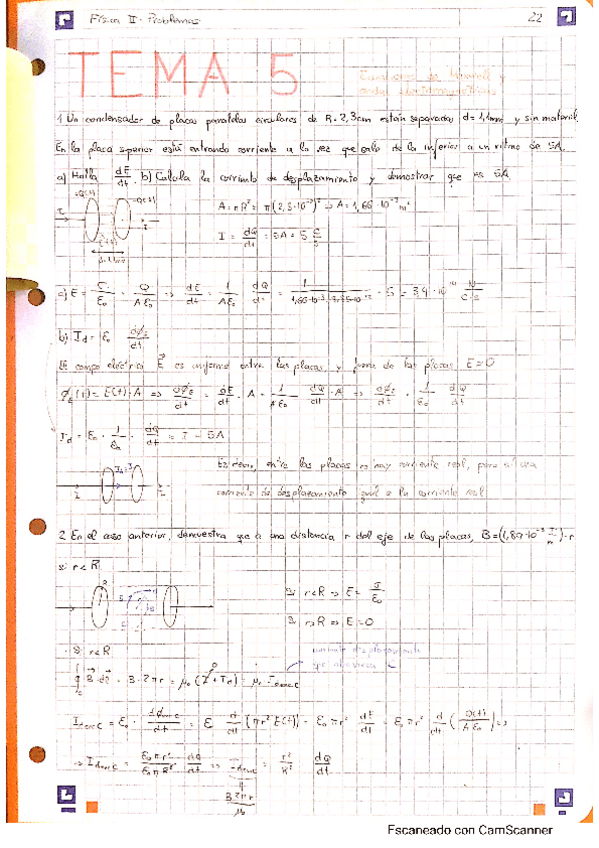 Física II - Problemas 22
TEMA 5
Ecuaciones de Maxwell y
ondas electromagnéticas
1 Un condensador de placas paralelas circulares de R=2,3cm están separadas d=1,1mm y sin material.
En la placa superior está entrando corriente a la vez que sale de la inferior a un ritmo de 5A.
a) Halla dE/dt. b) Calcula la corriente de desplazamiento y demostrar que es 5A.
+Q(t) -Q(t)
I I
A = πR² = π(2,3·10⁻²)² => A = 1,66·10⁻³ m²
I = dQ/dt = 5A = 5 C/s
a) E = σ/ε₀ = Q/Aε₀ => dE/dt = 1/Aε₀ · dQ/dt = 1/1,66·10⁻³·8,85·10⁻¹² · 5 = 3,4·10¹⁴ N/C·s
b) Id = ε₀ dϕE/dt
El campo eléctrico E es uniforme entre las placas, y fuera de las placas E=0
ϕE(t) = E(t)·A => dϕE/dt = dE/dt · A = 1/Aε₀ dQ/dt · A => dϕE/dt = 1/ε₀ dQ/dt
Id = ε₀ · 1/ε₀ · dQ/dt = I = 5A
Es decir, entre las placas no hay corriente real, pero sí una
corriente de desplazamiento igual a la corriente real
2 En el caso anterior, demuestra que a una distancia r del eje de las placas, B=(1,89·10⁻³ T/m)·r
si r<R
Si r<R => E = σ/ε₀
Si r>R => E=0
· Si r<R
corriente desplazamiento
que atraviesa C
∮c B dl = B·2πr = μ₀(I + Id) = μ₀ Id enc C
Id enc C = ε₀ · dϕ enc C/dt = ε₀ d/dt (πr² E(t)) = ε₀ πr² dE/dt = ε₀ πr² d/dt (Q(t)/Aε₀) =>
-> Id enc C = ε₀πr²/ε₀πR² dQ/dt => Id enc = r²/R² dQ/dt
B2πr/μ₀
Escaneado con CamScanner